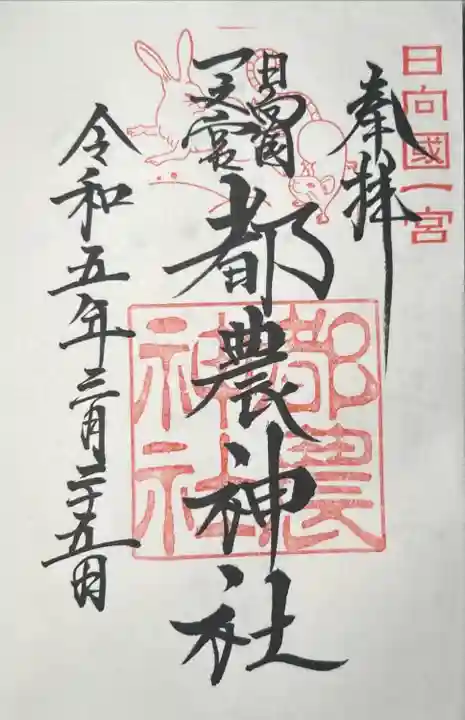 日向國一宮
奉拜
日向國
一之宮
都農神社
都農
神社
令和五年三月二十五日